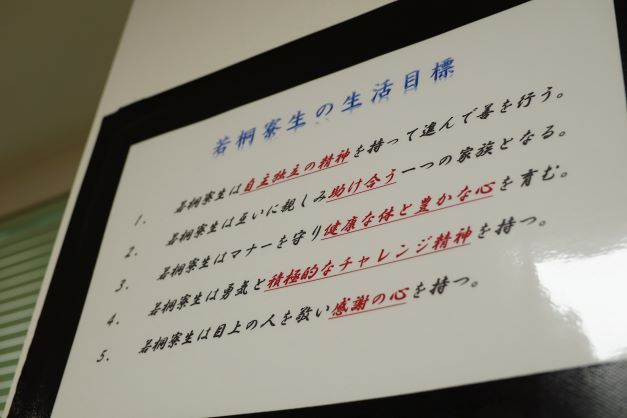 若桐寮生の生活目標
1. 若桐寮生は自主独立の精神を持って進んで善を行う。
2. 若桐寮生は互いに親しみ助け合う一つの家族となる。
3. 若桐寮生はマナーを守り健康な体と豊かな心を育む。
4. 若桐寮生は勇気と積極的なチャレンジ精神を持つ。
5. 若桐寮生は目上の人を敬い感謝の心を持つ。